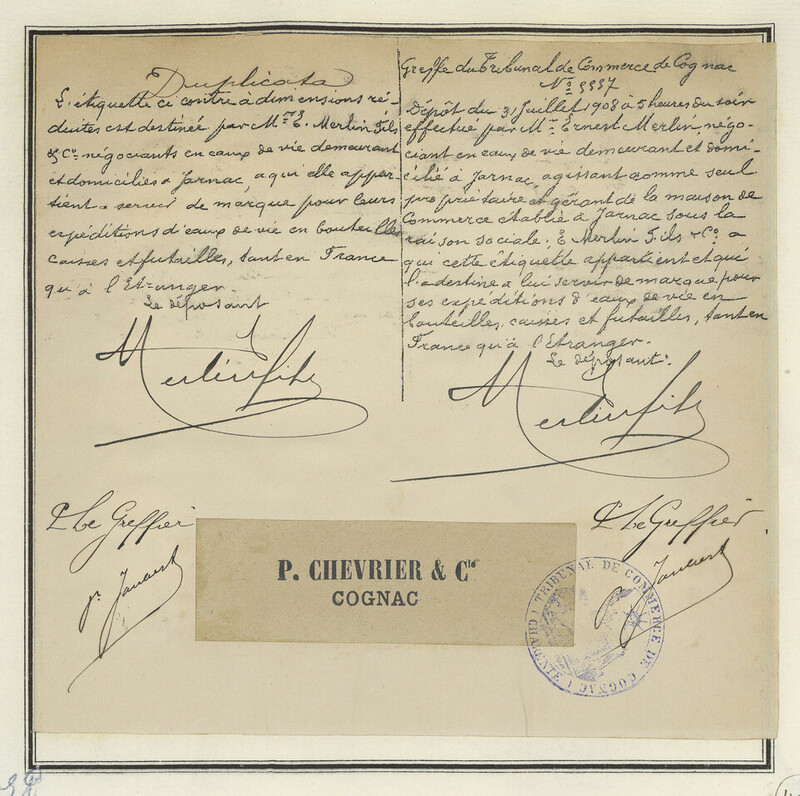 Duplicata
L'étiquette ci contre à dimensions ré-
duites est destinée par Mrs E. Merlin Fils
& Co négociants en eaux de vie demeurant
et domiciliés à Jarnac, à qui elle appar-
tient a servir de marque pour leurs
expéditions d'eaux de vie en bouteilles
caisses et futailles, tant en France
qu'à l'Etranger.
Le déposant
Merlin fils
P. Le Greffier
Greffe du Tribunal de Commerce de Cognac
No 9997
Dépôt du 31 Juillet 1908 à 5 heures du soir
effectué par Mr Ernest Merlin, négo-
ciant en eaux de vie demeurant et domi-
cilié à Jarnac, agissant comme seul
propriétaire et gérant de la maison de
Commerce établie à Jarnac sous la
raison sociale: E Merlin Fils & Co a
qui cette étiquette appartient et qui
l'a destine a lui servir de marque pour
ses expéditions d'eaux de vie en
bouteilles, caisses et futailles, tant en
France qu'à l'étranger.
Le déposant:
Merlin fils
P. Le Greffier
P. CHEVRIER & Cie
COGNAC
TRIBUNAL DE COMMERCE DE COGNAC (CHARENTE)